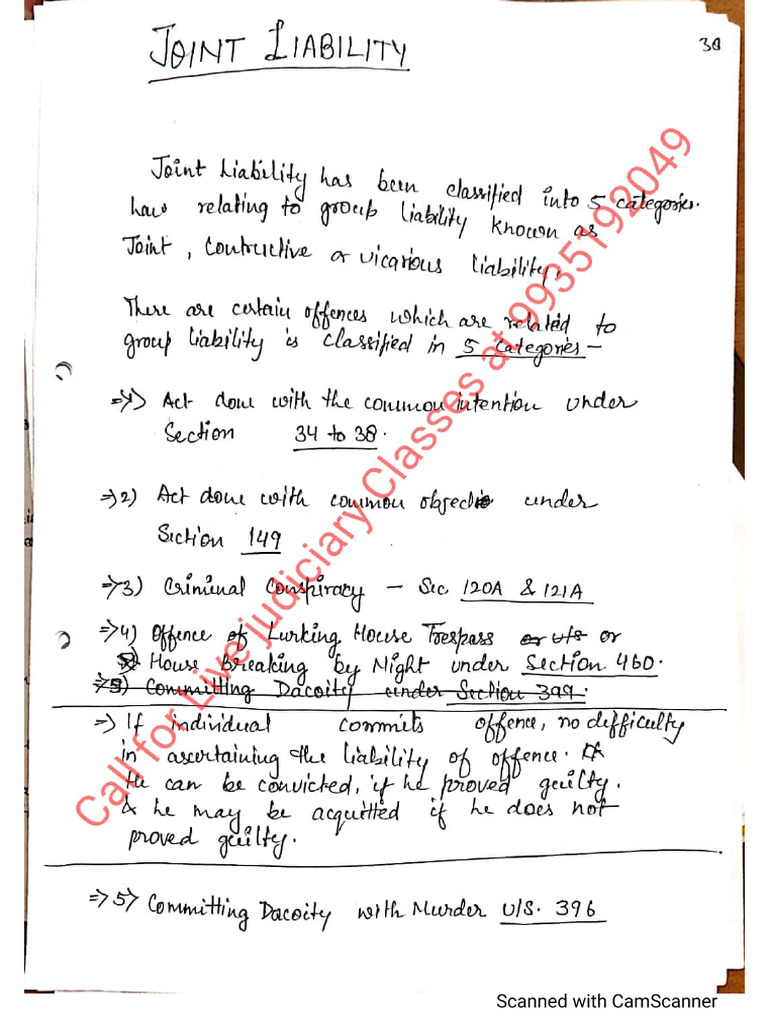 JOINT LIABILITY
30
Joint Liability has been classified into 5 categories.
Law relating to group liability known as
Joint, Contructive or vicarious liability.
There are certain offences which are related to
group liability is classified in 5 categories –
⇒1) Act done with the common intention under
Section 34 to 38.
⇒2) Act done with common object under
Section 149
⇒3) Criminal Conspiracy – Sec 120A & 121A
⇒4) Offence of Lurking House Trespass or u/s or
5) House Breaking by Night under Section 460.
⇒5) Committing Dacoity under Section 399.
⇒) If individual commits offence, no difficulty
in ascertaining the liability of offence.
He can be convicted, if he proved guilty.
& he may be acquitted if he does not
proved guilty.
⇒5) Committing Dacoity with Murder U/S. 396
Call for Live judiciary Classes at 9935192049
Scanned with CamScanner